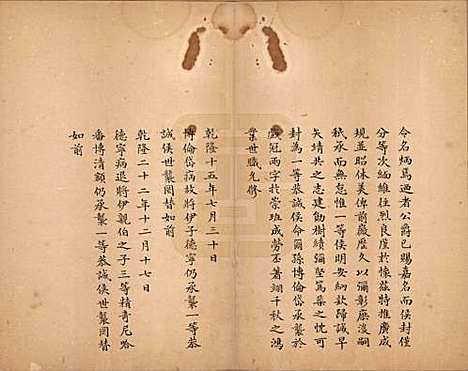 令名炳焉迺者公爵已賜嘉名而侯封僅
分等次緬維往烈良廑於懷茲特推廣成
規並昭休美俾前徽歷久以彌彰慶後嗣
祇承而無怠惟一等侯明安納欵歸誠早
矢靖共之志建勛樹績彌堅篤棐之忱可
封為一等恭誠侯命爾孫博倫岱承襲於
戲冠兩字於崇班成勞丕著綿千秋之鴻
業世職允修
乾隆十五年七月三十日
博倫岱病故將伊子德寧仍承襲一等恭
誠侯世襲罔替如前
乾隆二十二年十二月十七日
德寧病退將伊親伯之子三等精奇尼哈
番博清額仍承襲一等恭誠侯世襲罔替
如前